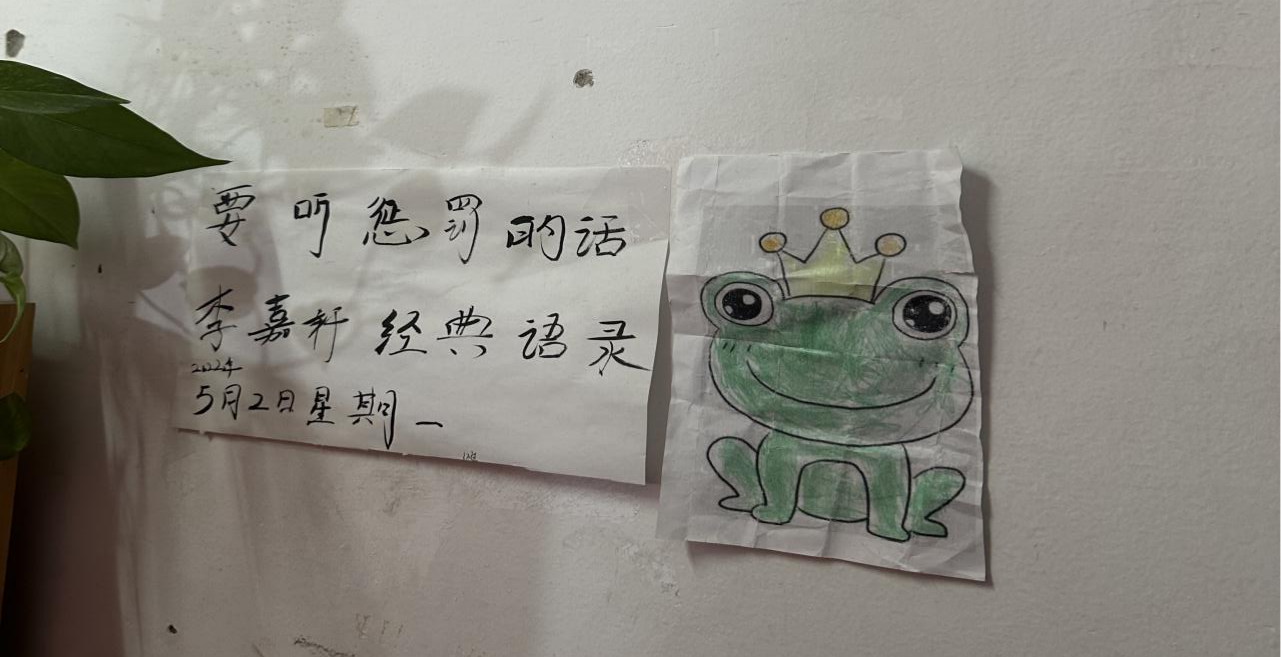 要听惩罚的话
李嘉轩经典语录
2022年
5月2日星期一